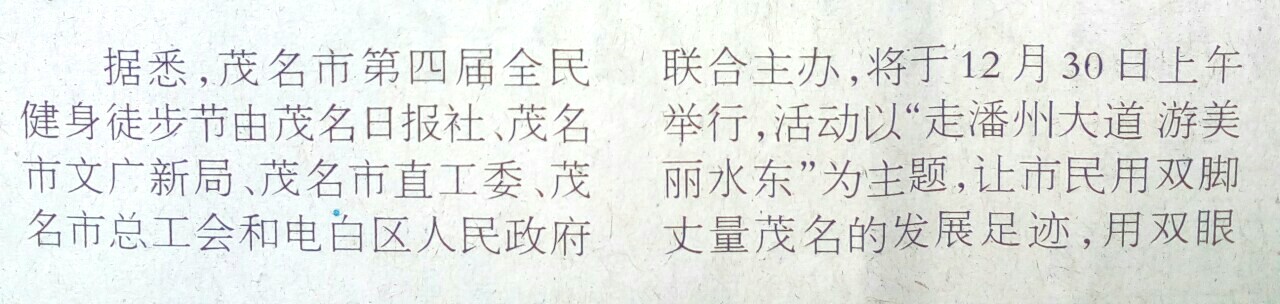 据悉,茂名市第四届全民
健身徒步节由茂名日报社、茂名
市文广新局、茂名市直工委、茂
名市总工会和电白区人民政府
联合主办,将于12月30日上午
举行,活动以“走潘州大道 游美
丽水东”为主题,让市民用双脚
丈量茂名的发展足迹,用双眼